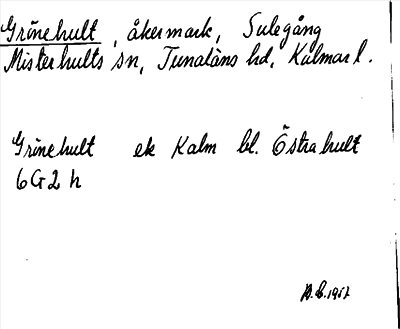 Grinehult, åkermark, Sulegång
Misterhults sn, Tunaläns hd, Kalmar l.
Grinehult ek Kalm bl. Östrahult
6G2h
1957